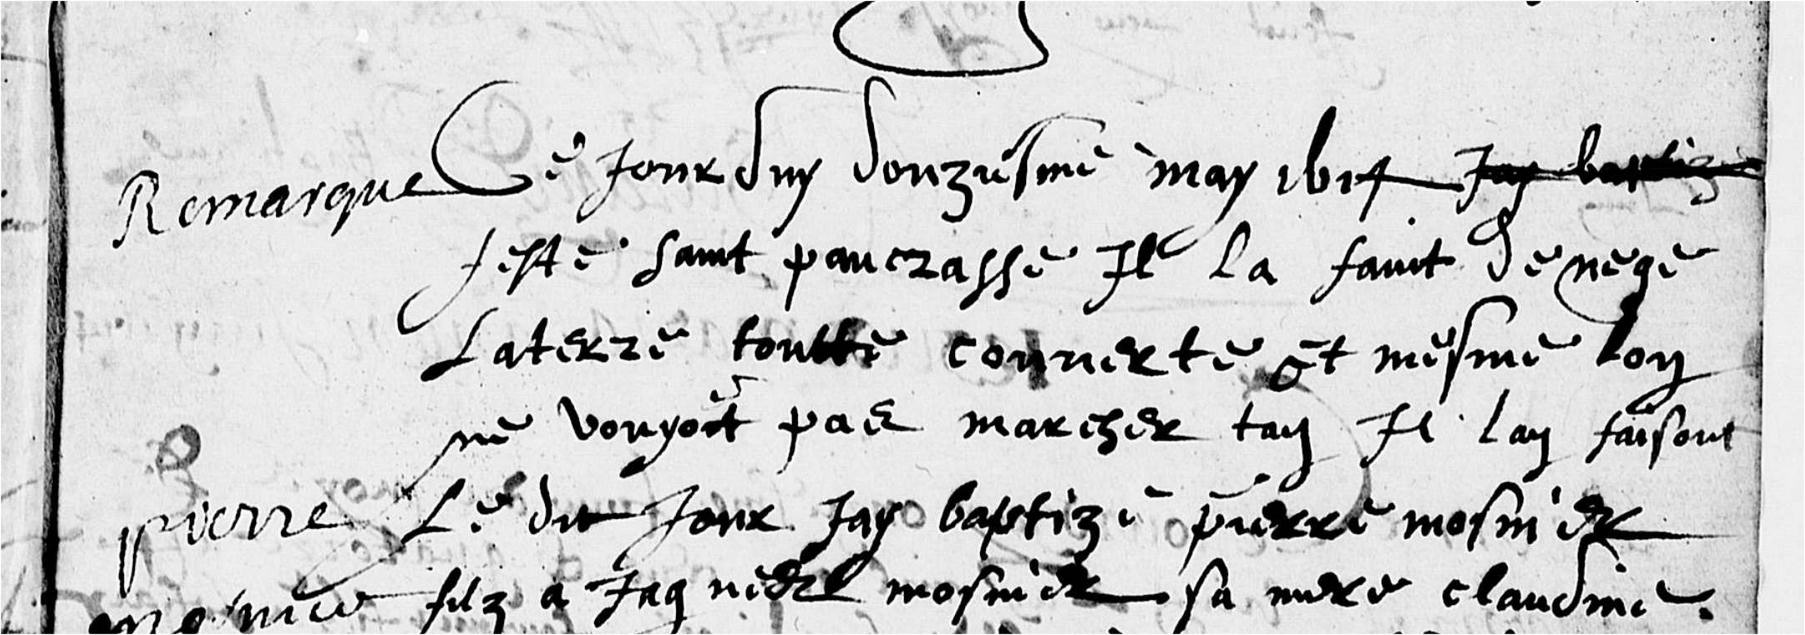 Remarque Ce Jourduy douziesme may 1617 Jay baptize
feste saint pancrasse Il la fauct de nege
La terre toutte couverte et mesme lon
ne vouyoit pas marcher tan Il lan faisout
pierre Le dit Jour Jay baptizé pierre mosnier
mosnier filz a Jaques mosnier sa mere claudine